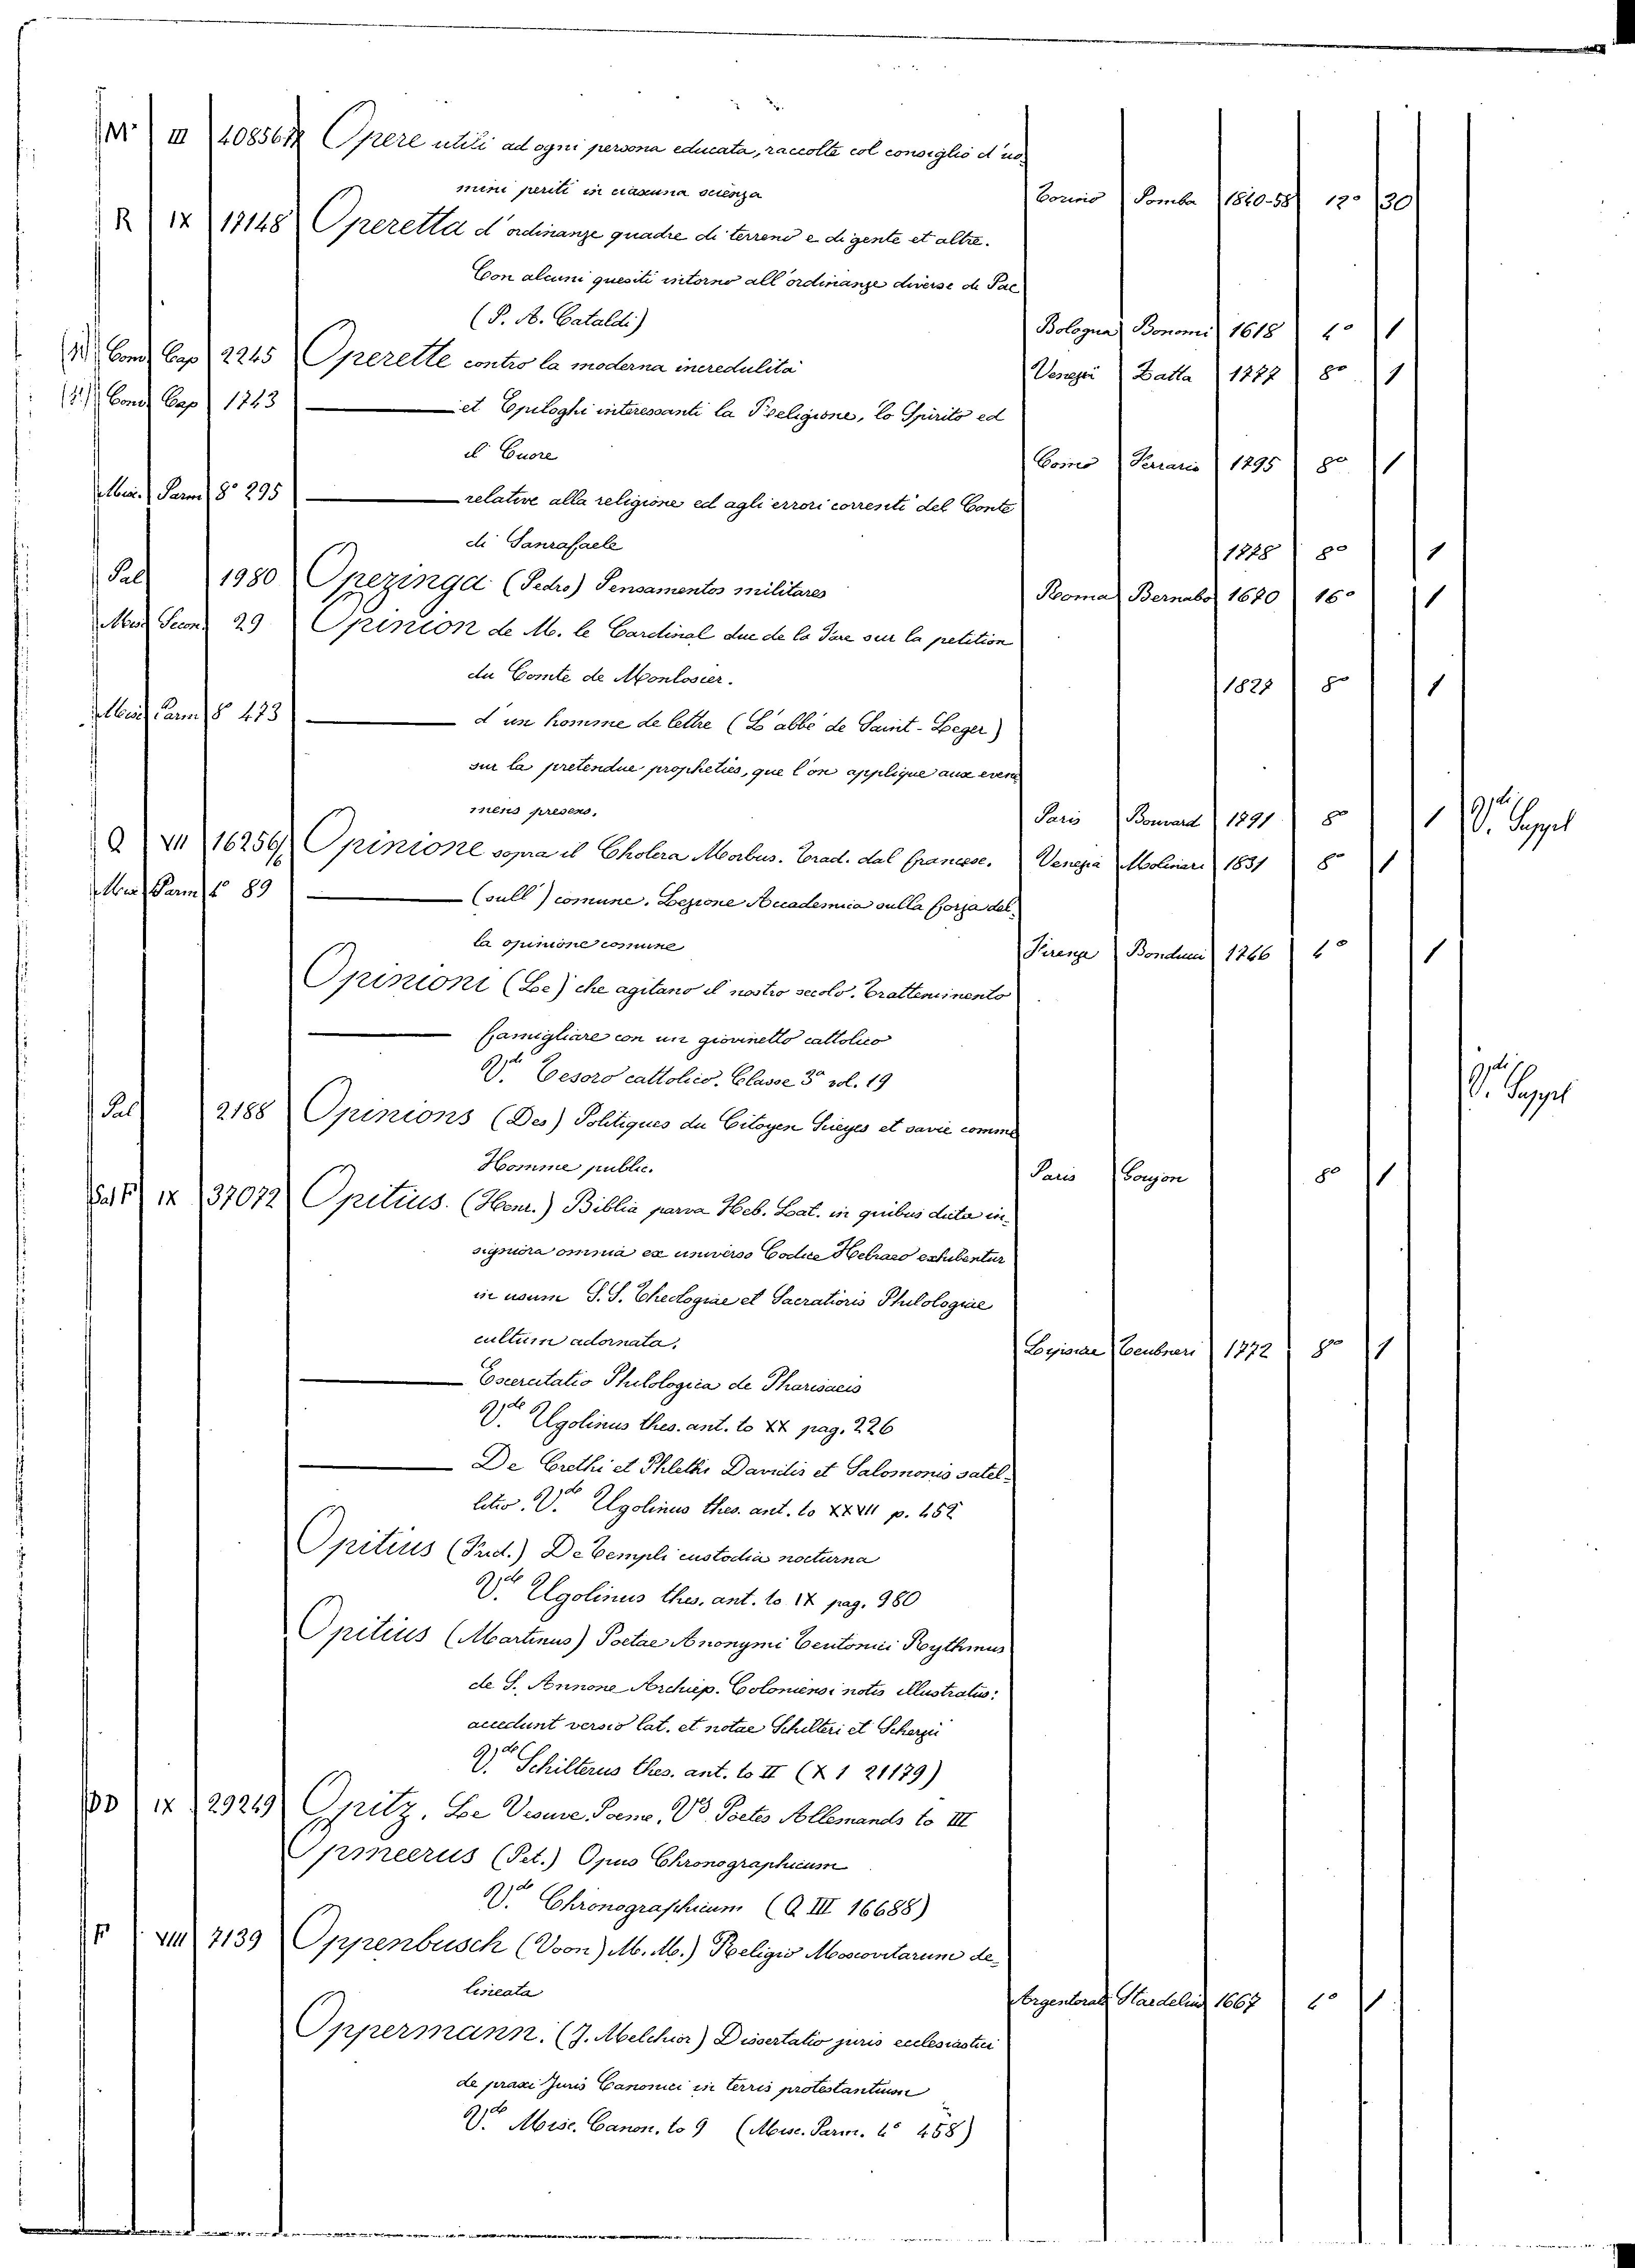 M III 408567 Opere utili ad ogni persona educata, raccolte col consiglio d'uo-
mini periti in ciascuna scienza Torino Pomba 1840-58 12º 30
R IX 17148 Operetta d'ordinanze quadre di terreno e di gente et altre.
Con alcuni quesiti intorno all'ordinanze diverse di Pac
(P. A. Cataldi) Bologna Bonomi 1618 4º 1
Cons Cap 2245 Operette contro la moderna incredulità Venezia Zatta 1777 8º 1
Cons Cap 1743 et Epiloghi interessanti la Religione, lo Spirito ed
il Cuore Como Ferrario 1795 8º 1
Misc. Parm 8º 295 relative alla religione ed agli errori correnti del Conte
di Sanrafaele 1788 8º 1
Pal 1980 Opezinga (Pedro) Pensamentos militares Roma Bernabo 1670 16º 1
Misc 29 Opinion de M. le Cardinal duc de la Fare sur la petition
du Comte de Monlosier. 1827 8º 1
Misc Parm 8 473 d'un homme de lettre (L'abbé de Saint-Leger)
sur la pretendue propheties, que l'on applique aux evene
mens presens. Paris 1791 8º 1 Vdi Suppl
Q VII 16256 Opinione sopra il Cholera Morbus. Trad. dal francese. Venezia Molinari 1831 8º 1
Misc Parm 4º 89 (sull') comune. Lezione Accademica sulla forza del-
la opinione comune Firenze Bonducci 1766 4º 1
Opinioni (Le) che agitano il nostro secolo. Trattenimento
famigliare con un giovinetto cattolico
Vdi Tesoro cattolico. Classe 3ª vol. 19 Vdi Suppl
Pal 2188 Opinions (Des) Politiques du Citoyen Sieyes et savie comme
Homme public. Paris Goujon 8º 1
IX 37072 Opitius. (Henr.) Biblia parva Heb. Lat. in quibus dicta in-
signiora omnia ex universo Codice Hebraeo exhibentur
in usum S.S. Theologiae et Sacratioris Philologiae
cultum adornata. Lipsiae Teubneri 1772 8º 1
Exercitatio Philologica de Pharisaeis
Vde Ugolinus thes. ant. to XX pag. 226
De Crethi et Phlethi Davidis et Salomonis satel-
litio. Vde Ugolinus thes. ant. to XXVII p. 452
Opitius (Frid.) De Templi custodia nocturna
Vde Ugolinus thes. ant. to IX pag. 980
Opitius (Martinus) Poetae Anonymi Teutonici Rythmus
de S. Annone Archiep. Coloniensi notis illustratus:
accedunt versio lat. et notae Schilteri et Scherzii
Vde Schilterus thes. ant. to II (X 1 21179)
DD IX 29249 Opitz. Le Vesuve Poeme. Vs Poetes Allemands to III
Opmeerus (Pet.) Opus Chronographicum
Vde Chronographicum (Q III 16688)
F VIII 7139 Oppenbusch (Von) M. M.) Religio Moscovitarum de-
lineata Argentorat Staedelius 1667 4º 1
Oppermann. (J. Melchior) Dissertatio juris ecclesiastici
de praxi Juris Canonici in terris protestantium
Vde Misc. Canon. to 9 (Misc. Parm. 4º 458)